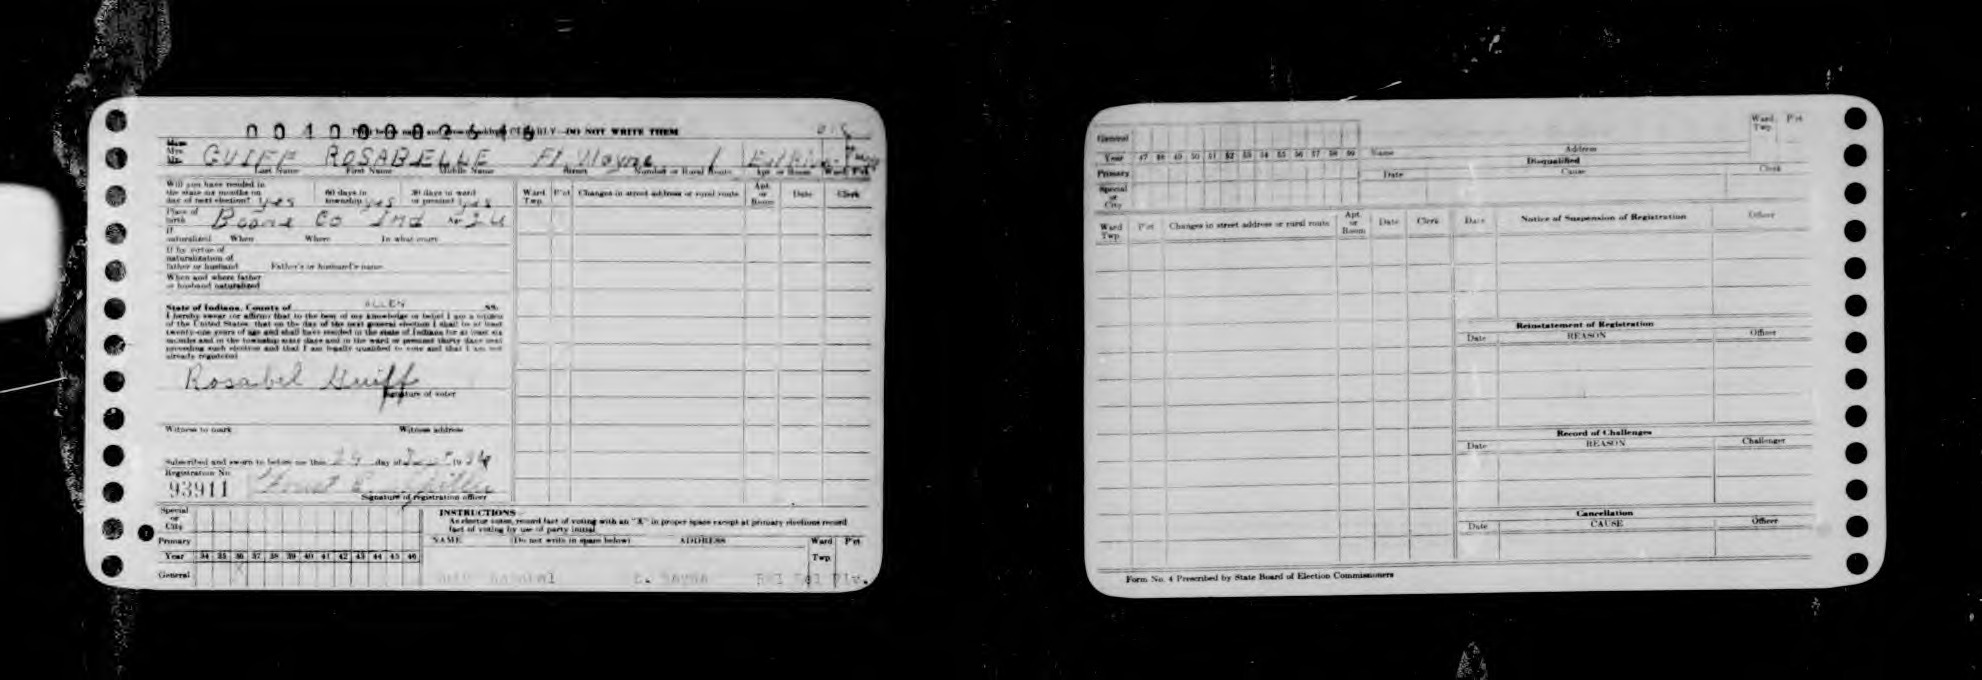 DO NOT WRITE THEM
Mrs.
GUIFF ROSABELLE Ft. Wayne 1
Last Name First Name Middle Name Street Number or Rural Route Apt. or Room Ward P'ct
Will you have resided in 60 days in 30 days in ward
the state six months on township yes or precinct yes
day of next election? yes
Place of birth Boone Co Ind Age 24
If naturalized When Where In what court
If by virtue of
naturalization of
father or husband Father's or husband's name
When and where father
or husband naturalized
State of Indiana, County of ALLEN SS:
I hereby swear (or affirm) that to the best of my knowledge or belief I am a citizen
of the United States; that on the day of the next general election I shall be at least
twenty-one years of age and shall have resided in the state of Indiana for at least six
months and in the township sixty days and in the ward or precinct thirty days next
preceding such election and that I am legally qualified to vote and that I am not
already registered
Rosabel Guiff
Signature of voter
Witness to mark Witness address
Subscribed and sworn to before me this 29 day of
Registration No.
93911
Signature of registration officer
Ward Twp. P'ct Changes in street address or rural route Apt. or Room Date Clerk
Special
or
City
Primary
Year 34 35 36 37 38 39 40 41 42 43 44 45 46
General X
INSTRUCTIONS
As elector votes, record fact of voting with an "X" in proper space except at primary elections record
fact of voting by use of party initial.
NAME (Do not write in space below) ADDRESS Ward Twp. P'ct
General
Year 47 48 49 50 51 52 53 54 55 56 57 58 59
Primary
Special
or
City
Name Address Ward Twp. P'ct
Disqualified
Date Cause Clerk
Ward Twp. P'ct Changes in street address or rural route Apt. or Room Date Clerk
Date Notice of Suspension of Registration Officer
Reinstatement of Registration
Date REASON Officer
Record of Challenges
Date REASON Challenger
Cancellation
Date CAUSE Officer
Form No. 4 Prescribed by State Board of Election Commissioners